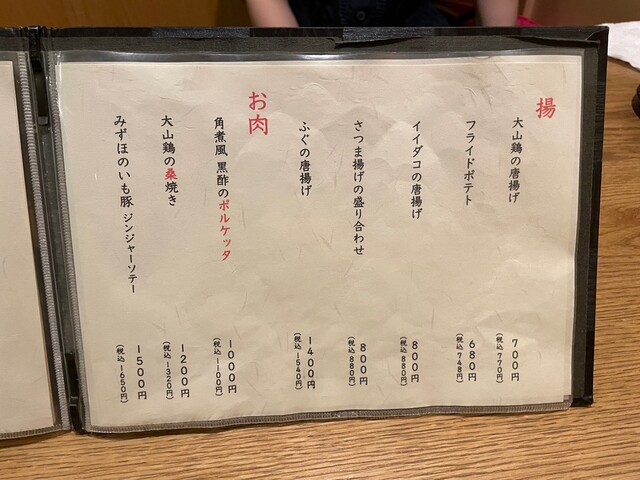 揚
大山鶏の唐揚げ
700円
(税込 770円)
フライドポテト
680円
(税込 748円)
イイダコの唐揚げ
800円
(税込 880円)
さつま揚げの盛り合わせ
800円
(税込 880円)
ふぐの唐揚げ
1400円
(税込 1540円)
お肉
角煮風 黒酢のポルケッタ
1000円
(税込 1100円)
大山鶏の桑焼き
1200円
(税込 1320円)
みずほのいも豚 ジンジャーソテー
1500円
(税込 1650円)